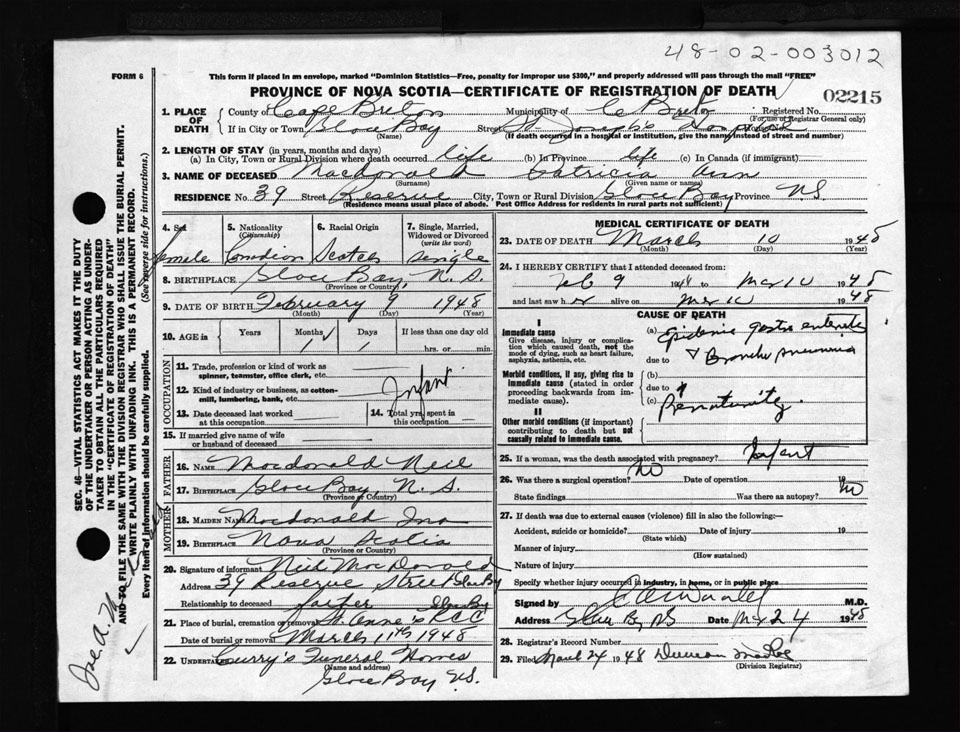 48-02-003012
FORM 6
This form if placed in an envelope, marked "Dominion Statistics—Free, penalty for improper use $300," and properly addressed will pass through the mail "FREE"
PROVINCE OF NOVA SCOTIA—CERTIFICATE OF REGISTRATION OF DEATH
02215
1. PLACE OF DEATH
County of Cape Breton Municipality of C Breton Registered No.
(For use of Registrar General only)
If in City or Town Glace Bay Street St Joseph's Hospital
(Name) (If death occurred in a hospital or institution, give the name instead of street and number)
2. LENGTH OF STAY (in years, months and days)
(a) In City, Town or Rural Division where death occurred life (b) In Province life (c) In Canada (if immigrant)
3. NAME OF DECEASED Macdonald Patricia Ann
(Surname) (Given name or names)
RESIDENCE No. 39 Street Reserve City, Town or Rural Division Glace Bay Province N.S.
(Residence means usual place of abode. Post Office Address for residents in rural parts not sufficient)
4. Sex
female
5. Nationality
(Citizenship)
Canadian
6. Racial Origin
Scotch
7. Single, Married, Widowed or Divorced
(write the word)
single
8. BIRTHPLACE Glace Bay, N.S.
(Province or Country)
9. DATE OF BIRTH February 9 1948
(Month) (Day) (Year)
10. AGE in
Years Months Days If less than one day old
1 1 hrs. or min.
OCCUPATION
11. Trade, profession or kind of work as
spinner, teamster, office clerk, etc.
12. Kind of industry or business, as cotton-
mill, lumbering, bank, etc.
Infant
13. Date deceased last worked
at this occupation
14. Total yrs. spent in
this occupation
15. If married give name of wife
or husband of deceased
FATHER
16. NAME Macdonald Neil
17. BIRTHPLACE Glace Bay N.S.
(Province or Country)
MOTHER
18. MAIDEN NAME Macdonald Ina
19. BIRTHPLACE Nova Scotia
(Province or Country)
20. Signature of informant Neil MacDonald
Address 39 Reserve Street Glace Bay
Relationship to deceased father
Glace Bay
21. Place of burial, cremation or removal St. Anne's RCC
Date of burial or removal March 11th 1948
22. Undertaker Curry's Funeral Homes
(Name and address)
Glace Bay N.S.
MEDICAL CERTIFICATE OF DEATH
23. DATE OF DEATH March 10 1948
(Month) (Day) (Year)
24. I HEREBY CERTIFY that I attended deceased from:
Feb 9 1948 to Mar 10 1948
and last saw her alive on Mar 10 1948
CAUSE OF DEATH
I
Immediate cause
Give disease, injury or complication which caused death, not the mode of dying, such as heart failure, asphyxia, asthenia, etc.
(a) Epidemic gastro enteritis
due to & Broncho pneumonia
Morbid conditions, if any, giving rise to immediate cause (stated in order proceeding backwards from immediate cause).
(b)
due to
(c) Prematurity.
II
Other morbid conditions (if important) contributing to death but not causally related to immediate cause.
25. If a woman, was the death associated with pregnancy? Infant
26. Was there a surgical operation? No Date of operation
State findings Was there an autopsy? No
27. If death was due to external causes (violence) fill in also the following:—
Accident, suicide or homicide? Date of injury 19
(State which)
Manner of injury
(How sustained)
Nature of injury
Specify whether injury occurred in industry, in home, or in public place
Signed by M.D.
Address Glace Bay NS Date Mar 24 1948
28. Registrar's Record Number
29. Filed March 24 1948 Duncan
(Division Registrar)
SEC. 46—VITAL STATISTICS ACT MAKES IT THE DUTY
OF THE UNDERTAKER OR PERSON ACTING AS UNDER-
TAKER TO OBTAIN ALL THE PARTICULARS REQUIRED
IN THE "CERTIFICATE OF REGISTRATION OF DEATH"
AND TO FILE THE SAME WITH THE DIVISION REGISTRAR WHO SHALL ISSUE THE BURIAL PERMIT.
WRITE PLAINLY WITH UNFADING INK. THIS IS A PERMANENT RECORD.
Every item of information should be carefully supplied. (See reverse side for instructions.)